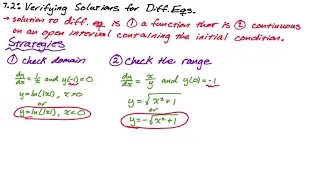 7.2: Verifying Solutions for Diff. Eqs.
→ solution to diff. eq. is ① a function that is ② continuous
on an open interval containing the initial condition.
Strategies
① check domain
dy/dx = 1/x and y(-1) = 0
y = ln(|x|), x > 0
or
y = ln(|x|), x < 0
② check the range
dy/dx = x/y and y(0) = -1
y = √(x²+1)
or
y = -√(x²+1)